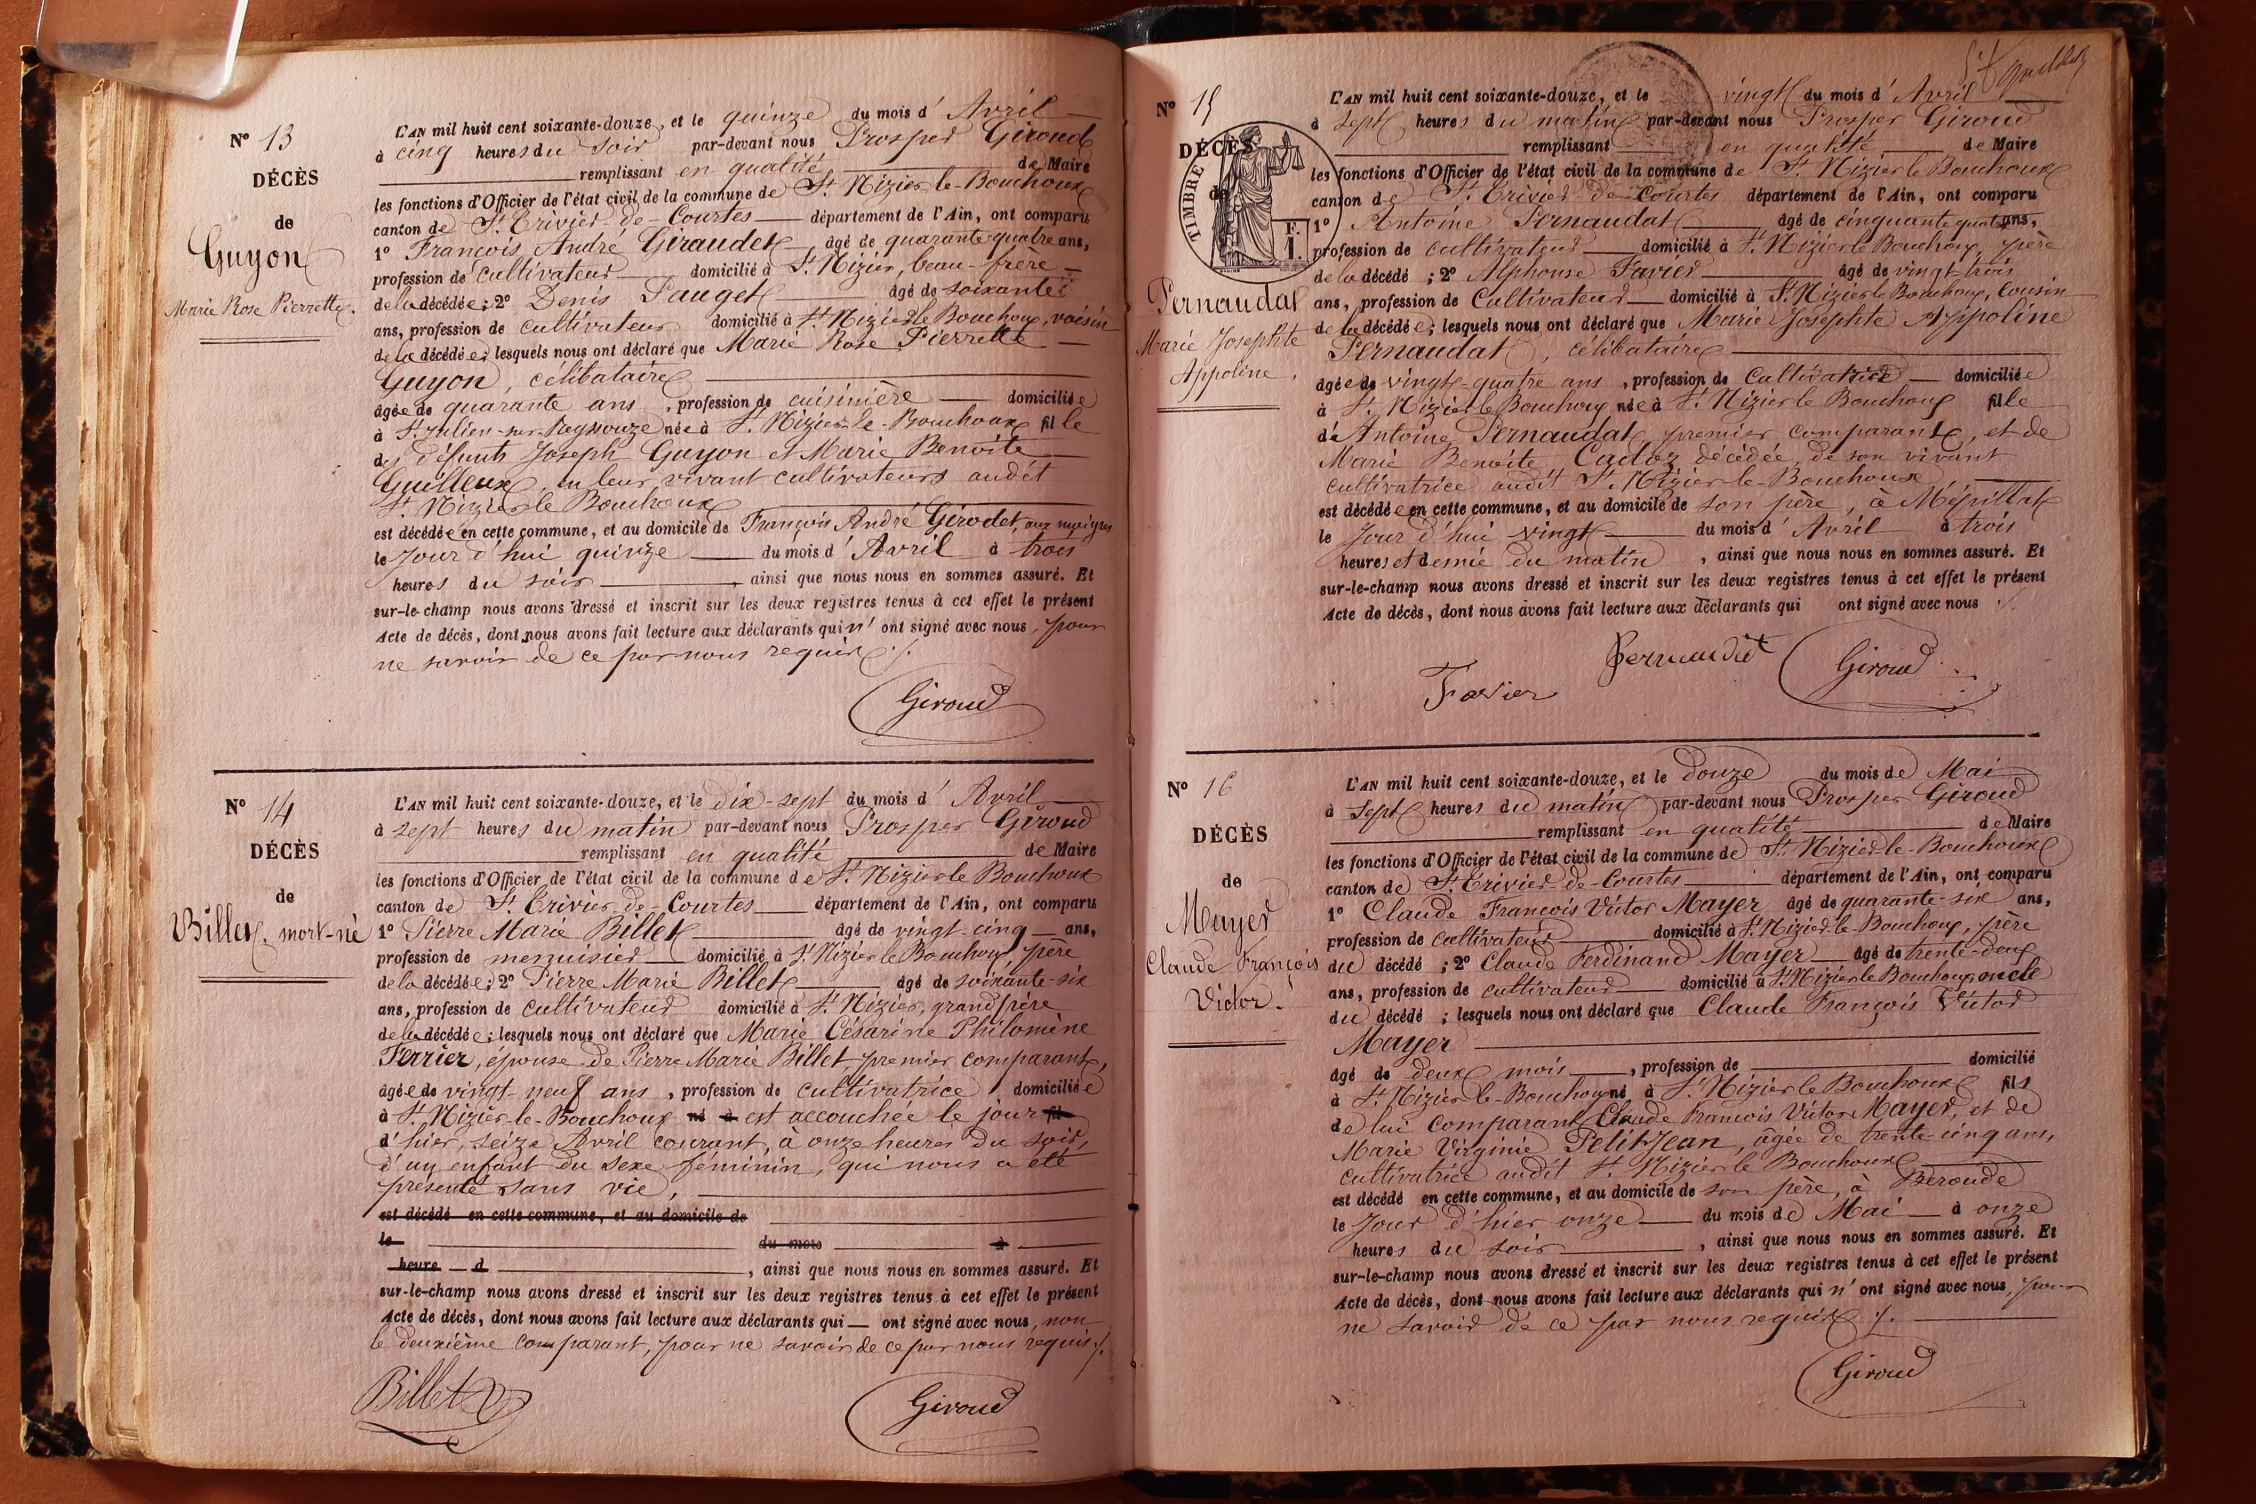 N° 13
DÉCÈS
de
Guyon
Marie Rose Pierrette.
L'AN mil huit cent soixante-douze, et le quinze du mois d'Avril
à cinq heures du soir par-devant nous Prosper Giroud
remplissant en qualité de Maire
les fonctions d'Officier de l'état civil de la commune de St Nizier-le-Bouchoux
canton de St Trivier-de-Courtes département de l'Ain, ont comparu
1° François André Giraudet âgé de quarante quatre ans,
profession de cultivateur domicilié à St Nizier, beau-frère
de la décédée; 2° Denis Pauget âgé de soixante
ans, profession de cultivateur domicilié à St Nizier le Bouchoux, voisin
de la décédée; lesquels nous ont déclaré que Marie Rose Pierrette
Guyon, célibataire
âgée de quarante ans, profession de cuisinière domiciliée
à St Julien-sur-Reyssouze née à St Nizier-le-Bouchoux fille
des défunts Joseph Guyon et Marie Benoîte
Guilleux, en leur vivant cultivateurs audit
St Nizier le Bouchoux
est décédée en cette commune, et au domicile de François André Girodet, aux
le jour d'hui quinze du mois d'Avril à trois
heures du soir, ainsi que nous nous en sommes assuré. Et
sur-le-champ nous avons dressé et inscrit sur les deux registres tenus à cet effet le présent
Acte de décès, dont nous avons fait lecture aux déclarants qui n'ont signé avec nous, pour
ne savoir de ce par nous requis ./.
Giroud
N° 14
DÉCÈS
de
Billet, mort-né
L'AN mil huit cent soixante-douze, et le dix-sept du mois d'Avril
à sept heures du matin par-devant nous Prosper Giroud
remplissant en qualité de Maire
les fonctions d'Officier de l'état civil de la commune de St Nizier le Bouchoux
canton de St Trivier-de-Courtes département de l'Ain, ont comparu
1° Pierre Marie Billet âgé de vingt-cinq ans,
profession de menuisier domicilié à St Nizier le Bouchoux, père
de la décédée; 2° Pierre Marie Billet âgé de soixante-six
ans, profession de cultivateur domicilié à St Nizier, grand père
de la décédée; lesquels nous ont déclaré que Marie Césarine Philomène
Ferrier, épouse de Pierre Marie Billet, premier comparant,
âgée de vingt-neuf ans, profession de cultivatrice domiciliée
à St Nizier-le-Bouchoux né à est accouchée le jour fil
d'hier, seize Avril courant, à onze heures du soir,
d'un enfant du sexe féminin, qui nous a été
présenté sans vie,
est décédé en cette commune, et au domicile de
le du mois à
heure d, ainsi que nous nous en sommes assuré. Et
sur-le-champ nous avons dressé et inscrit sur les deux registres tenus à cet effet le présent
Acte de décès, dont nous avons fait lecture aux déclarants qui ont signé avec nous, non
le deuxième comparant, pour ne savoir de ce par nous requis ./.
Billet
Giroud
N° 15
DÉCÈS
de
TIMBRE
F.
1.
Pernaudat
Marie Josephte
Appoline.
L'AN mil huit cent soixante-douze, et le vingt du mois d'Avril
à sept heures du matin par-devant nous Prosper Giroud
remplissant en qualité de Maire
les fonctions d'Officier de l'état civil de la commune de St Nizier le Bouchoux
canton de St Trivier-de-Courtes département de l'Ain, ont comparu
1° Antoine Pernaudat âgé de cinquante quatre ans,
profession de cultivateur domicilié à St Nizier le Bouchoux, père
de la décédé; 2° Alphonse Favier âgé de vingt-trois
ans, profession de Cultivateur domicilié à St Nizier le Bouchoux, Cousin
de la décédée; lesquels nous ont déclaré que Marie Josephte Appoline
Pernaudat, célibataire
âgée de vingt-quatre ans, profession de Cultivatrice domiciliée
à St Nizier le Bouchoux née à St Nizier le Bouchoux fille
d'Antoine Pernaudat, premier comparant, et de
Marie Benoîte Cadoz décédée, de son vivant
cultivatrice audit St Nizier-le-Bouchoux
est décédée en cette commune, et au domicile de son père, à Mépillat
le Jour d'hui vingt du mois d'Avril à trois
heures et demie du matin, ainsi que nous nous en sommes assuré. Et
sur-le-champ nous avons dressé et inscrit sur les deux registres tenus à cet effet le présent
Acte de décès, dont nous avons fait lecture aux déclarants qui ont signé avec nous ./.
Pernaudat
Giroud
Favier
N° 16
DÉCÈS
de
Mayer
Claude François
Victor.
L'AN mil huit cent soixante-douze, et le douze du mois de Mai
à Sept heures du matin par-devant nous Prosper Giroud
remplissant en qualité de Maire
les fonctions d'Officier de l'état civil de la commune de St Nizier-le-Bouchoux
canton de St Trivier-de-Courtes département de l'Ain, ont comparu
1° Claude François Victor Mayer âgé de quarante-six ans,
profession de cultivateur domicilié à St Nizier-le-Bouchoux, père
du décédé; 2° Claude Ferdinand Mayer âgé de trente-deux
ans, profession de cultivateur domicilié à St Nizier le Bouchoux oncle
du décédé; lesquels nous ont déclaré que Claude François Victor
Mayer
âgé de deux mois, profession de domicilié
à St Nizier-le-Bouchoux né à St Nizier le Bouchoux fils
de lui comparant Claude François Victor Mayer, et de
Marie Virginie Petitjean, âgée de trente-cinq ans,
cultivatrice audit St Nizier le Bouchoux
est décédé en cette commune, et au domicile de son père, à Beroude
le Jour d'hier onze du mois de Mai à onze
heures du soir, ainsi que nous nous en sommes assuré. Et
sur-le-champ nous avons dressé et inscrit sur les deux registres tenus à cet effet le présent
Acte de décès, dont nous avons fait lecture aux déclarants qui n'ont signé avec nous, pour
ne savoir de ce par nous requis ./.
Giroud